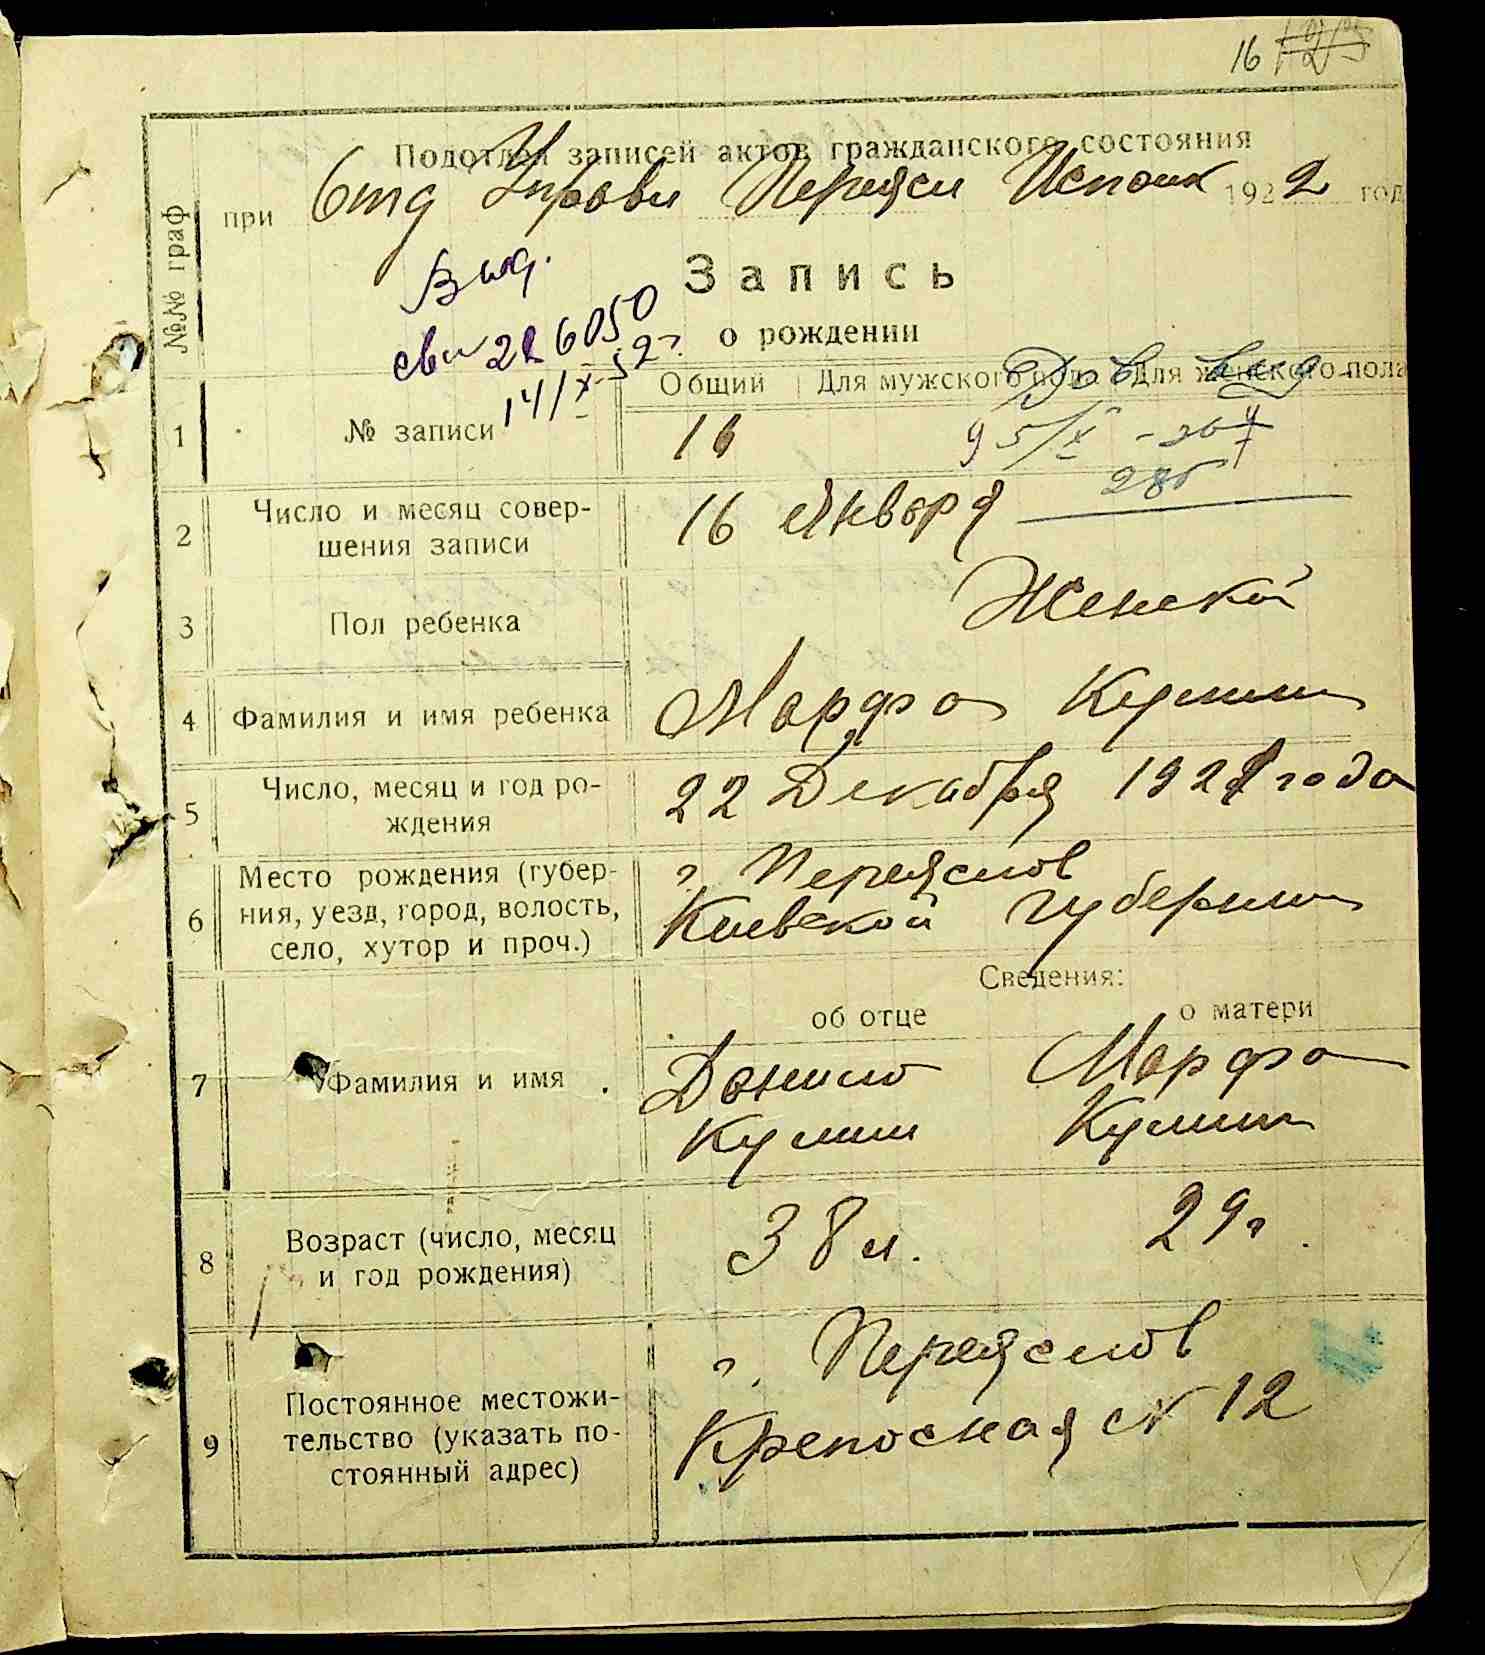 16
Подотдел записей актов гражданского состояния
при Отд Управл Переясл Исполк 1922 год
№№ граф
Запись
о рождении
Выд.
сви 226050
14/X-52г.
Общий Для мужского пола Для женского пола
1 № записи 16 9 5/X
2 Число и месяц совер-
шения записи 16 Января
3 Пол ребенка Женской
4 Фамилия и имя ребенка Марфа Кулиш
5 Число, месяц и год ро-
ждения 22 Декабря 1921 года
6 Место рождения (губер-
ния, уезд, город, волость,
село, хутор и проч.)
г. Переяслов
Киевской губернии
Сведения:
об отце о матери
7 Фамилия и имя Данило Марфа
Кулиш Кулиш
8 Возраст (число, месяц
и год рождения) 38 л. 29 г.
9 Постоянное местожи-
тельство (указать по-
стоянный адрес)
г. Переяслов
Крепосная № 12